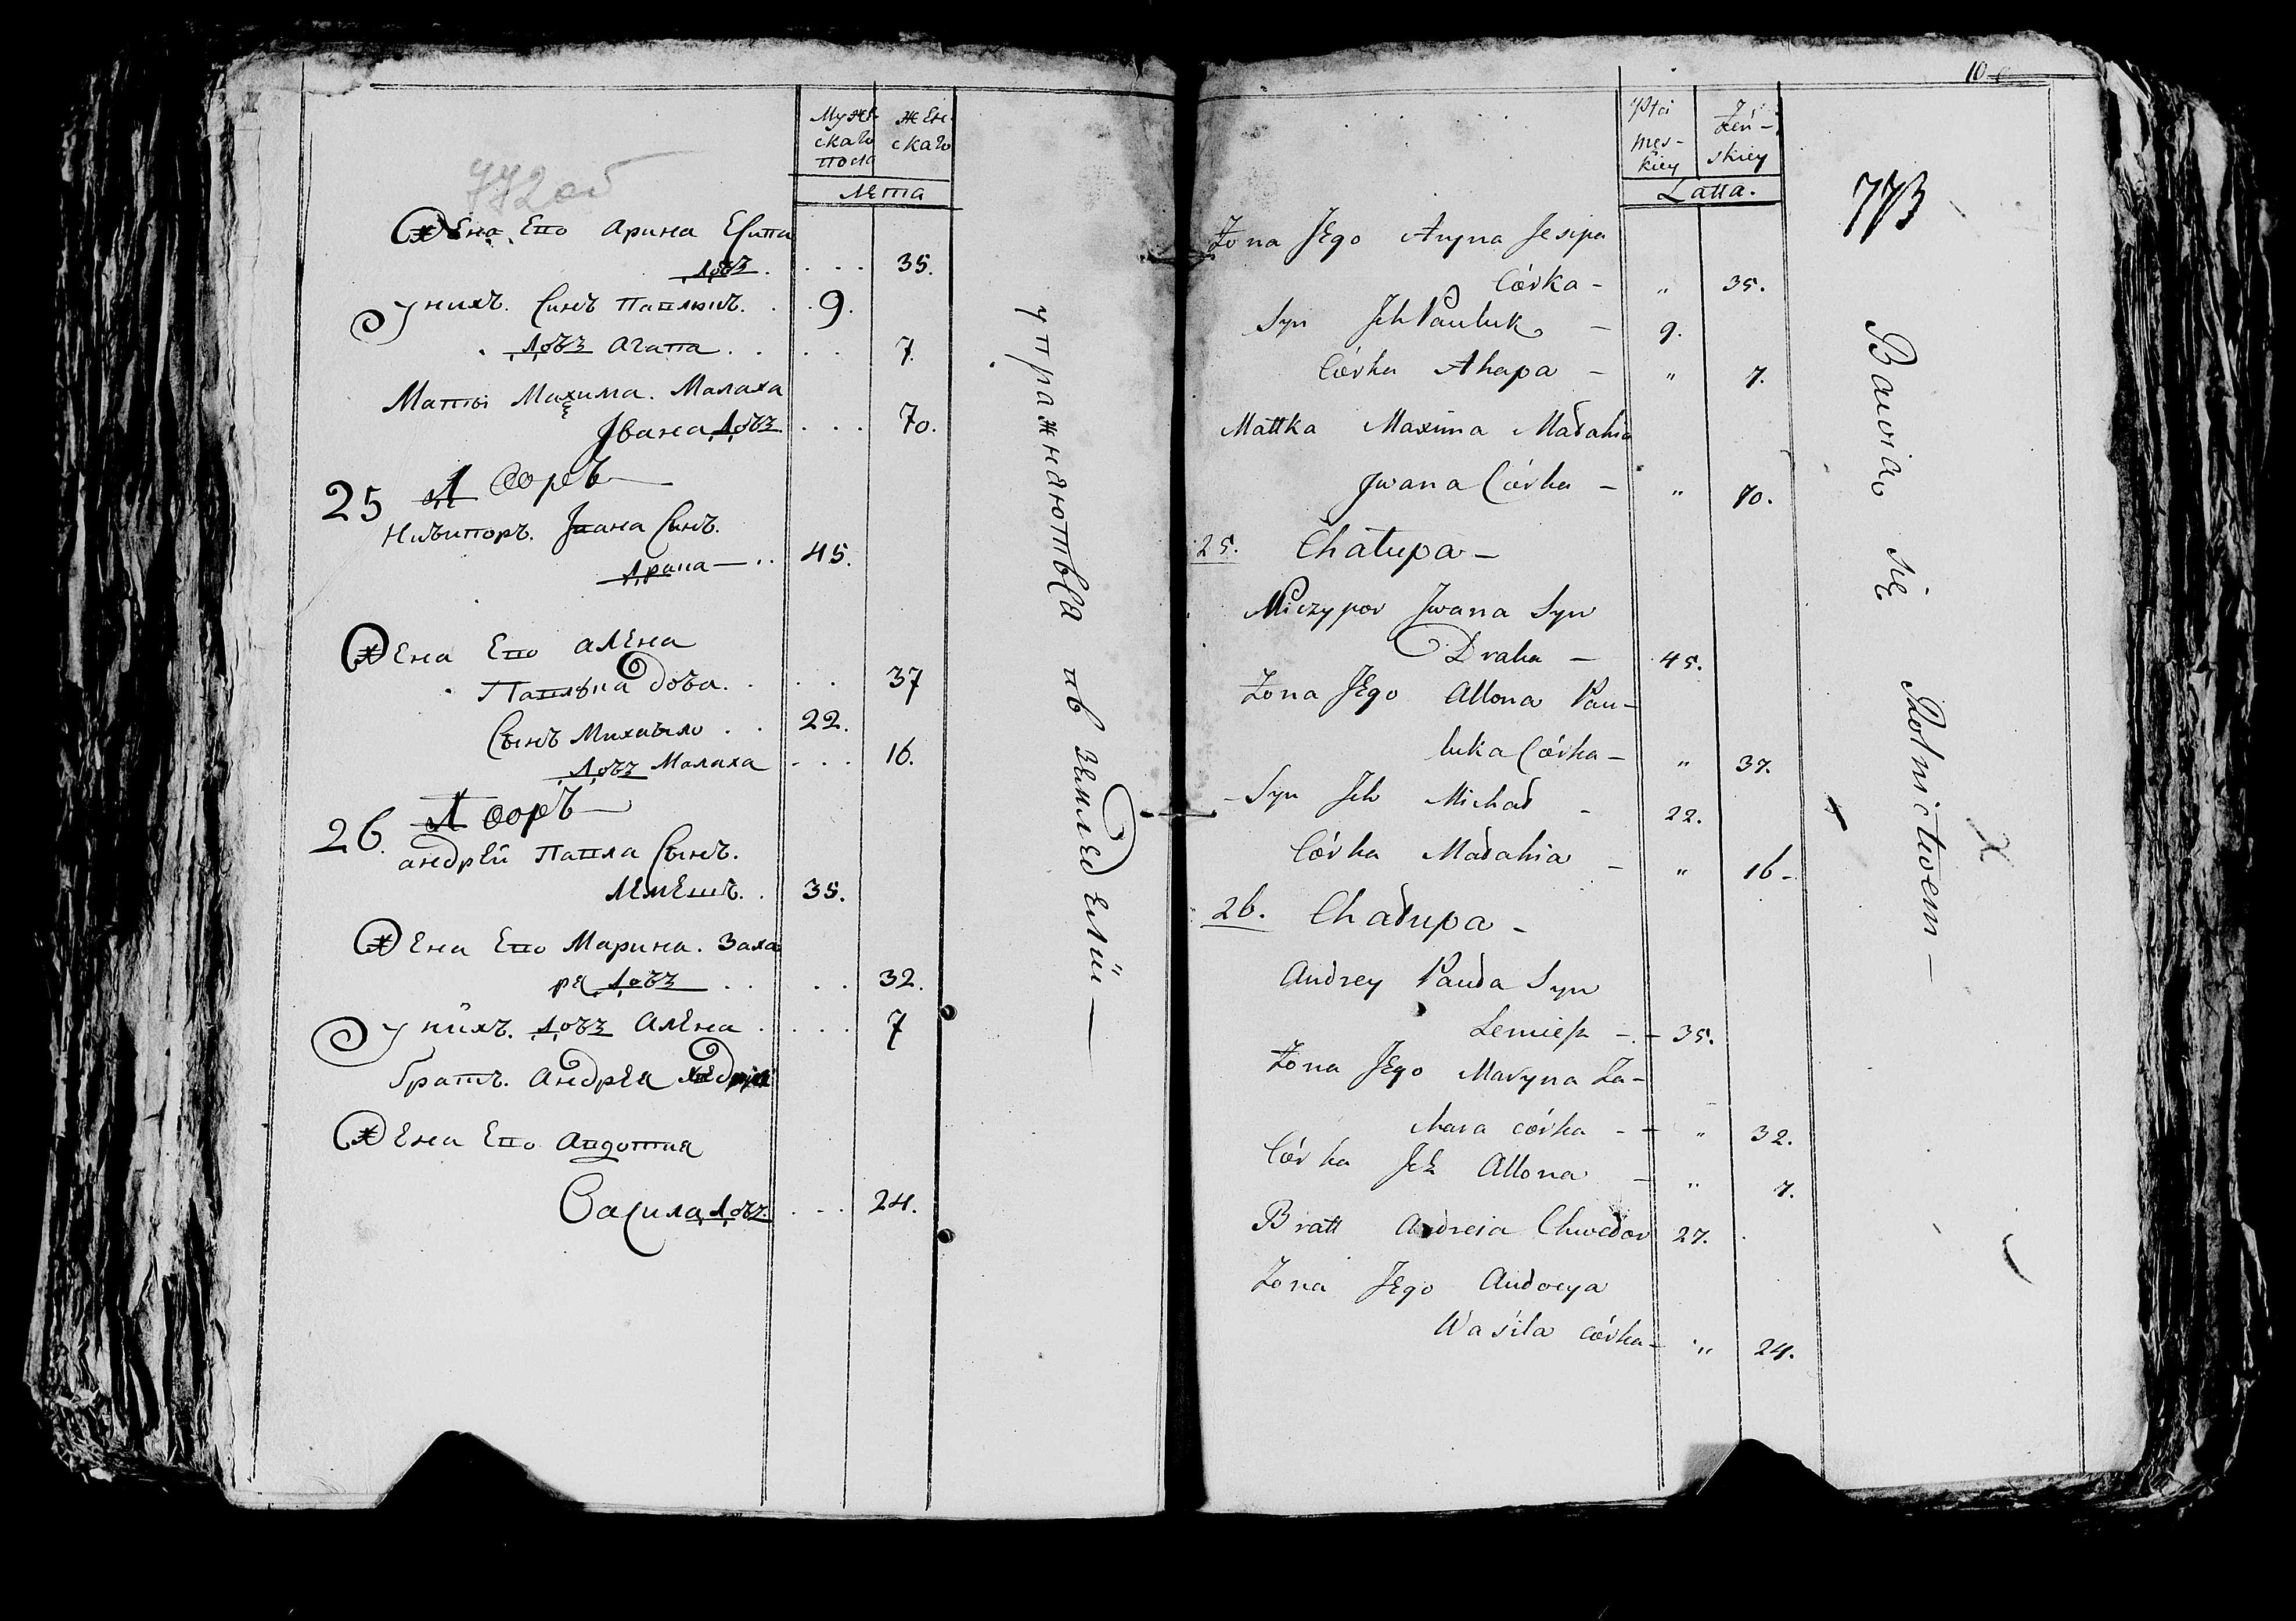 772 об
Мужескаго пола
женскаго
Лета
Жена Ево Арина Есипа
дочь. 35.
У нихъ. Сынъ Павлюкъ. 9.
дочь Агапа 7.
Матъ Махима. Малаха
Ивана дочь. 70.
25 Дворъ
Ничипоръ. Ивана Сынъ.
45.
Жена Ево алена
дочь. 37
Сынъ Михайло 22.
дочь Малаха 16.
26. Дворъ
андрей Павла Сынъ.
Лемешъ. 35.
Жена Ево Марина. Заха
ра дочь 32.
У нихъ. дочь Алена 7
братъ. Андрея
Жена Ево Авдотия
Васила дочь. 24.
упражнаютьса въ земледелии —
10
Płci męs-kiey
żeń-skiey
Latta.
773
Żona Jego Aryna Jesipa
Córka - " 35.
Syn Jch Pauluk - 9.
Córka Ahapa - " 7.
Mattka Maxima Małahia
Jwana Córka - " 70.
25. Chałupa -
Niczypor Jwana Syn
Draka - 45.
Żona Jego Allona Pau-
luka Córka - " 37.
Syn Jch Michał - 22.
Córka Małahia - " 16 -
26. Chałupa -
Andrey Pauła Syn
Lemiesz - 35.
Żona Jego Maryna Za-
hara córka - " 32.
Córka Jch Allona - " 7.
Bratt Andreia Chwedor 27.
Żona Jego Audocya
Wasila córka - " 24.
Bawią się Rolnictwem —